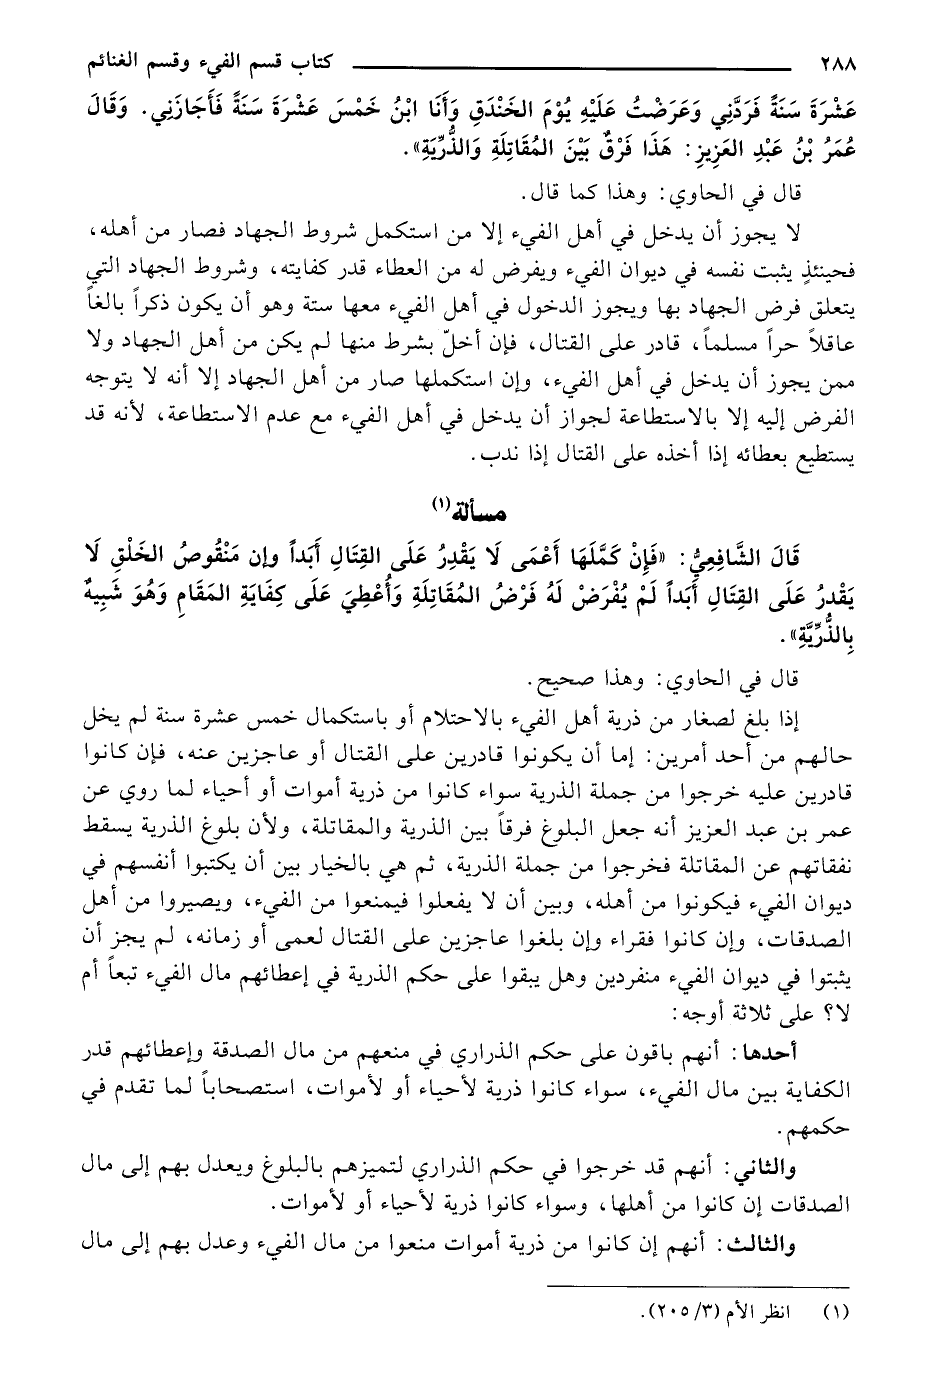 ٢٨٨ كتاب قسم الفيء وقسم الغنائم
عَشْرَةَ سَنَةً فَرَدَّنِي وَعَرَضْتُ عَلَيْهِ يُوْمَ الخَنْدَقِ وَأَنَا ابْنُ خَمْسَ عَشْرَةَ سَنَةً فَأَجَازَنِي. وَقَالَ
عُمَرُ بْنُ عَبْدِ العَزِيزِ: هَذَا فَرْقٌ بَيْنَ المُقَاتِلَةِ وَالذُّرِّيَةِ».
قال في الحاوي: وهذا كما قال.
لا يجوز أن يدخل في أهل الفيء إلا من استكمل شروط الجهاد فصار من أهله،
فحينئذٍ يثبت نفسه في ديوان الفيء ويفرض له من العطاء قدر كفايته، وشروط الجهاد التي
يتعلق فرض الجهاد بها ويجوز الدخول في أهل الفيء معها ستة وهو أن يكون ذكراً بالغاً
عاقلاً حراً مسلماً، قادر على القتال، فإن أخلّ بشرط منها لم يكن من أهل الجهاد ولا
ممن يجوز أن يدخل في أهل الفيء، وإن استكملها صار من أهل الجهاد إلا أنه لا يتوجه
الفرض إليه إلا بالاستطاعة لجواز أن يدخل في أهل الفيء مع عدم الاستطاعة، لأنه قد
يستطيع بعطائه إذا أخذه على القتال إذا ندب.
مسألة(١)
قَالَ الشَّافِعِيُّ: «فَإِنْ كَمَّلَهَا أَعْمَى لَا يَقْدِرُ عَلَى القِتَالِ أَبَداً وإن مَنْقُوصُ الخَلْقِ لَا
يَقْدرُ عَلَى القِتَالِ أَبَداً لَمْ يُفْرَضْ لَهُ فَرْضُ المُقَاتِلَةِ وَأُعْطِيَ عَلَى كِفَايَةِ المَقَامِ وَهُوَ شَبِيهٌ
بِالذُّرِّيَّةِ».
قال في الحاوي: وهذا صحيح.
إذا بلغ لصغار من ذرية أهل الفيء بالاحتلام أو باستكمال خمس عشرة سنة لم يخل
حالهم من أحد أمرين: إما أن يكونوا قادرين على القتال أو عاجزين عنه، فإن كانوا
قادرين عليه خرجوا من جملة الذرية سواء كانوا من ذرية أموات أو أحياء لما روي عن
عمر بن عبد العزيز أنه جعل البلوغ فرقاً بين الذرية والمقاتلة، ولأن بلوغ الذرية يسقط
نفقاتهم عن المقاتلة فخرجوا من جملة الذرية، ثم هي بالخيار بين أن يكتبوا أنفسهم في
ديوان الفيء فيكونوا من أهله، وبين أن لا يفعلوا فيمنعوا من الفيء، ويصيروا من أهل
الصدقات، وإن كانوا فقراء وإن بلغوا عاجزين على القتال لعمى أو زمانه، لم يجز أن
يثبتوا في ديوان الفيء منفردين وهل يبقوا على حكم الذرية في إعطائهم مال الفيء تبعاً أم
لا؟ على ثلاثة أوجه:
أحدها: أنهم باقون على حكم الذراري في منعهم من مال الصدقة وإعطائهم قدر
الكفاية بين مال الفيء، سواء كانوا ذرية لأحياء أو لأموات، استصحاباً لما تقدم في
حكمهم.
والثاني: أنهم قد خرجوا في حكم الذراري لتميزهم بالبلوغ ويعدل بهم إلى مال
الصدقات إن كانوا من أهلها، وسواء كانوا ذرية لأحياء أو لأموات.
والثالث: أنهم إن كانوا من ذرية أموات منعوا من مال الفيء وعدل بهم إلى مال
(١) انظر الأم (٣/ ٢٠٥).